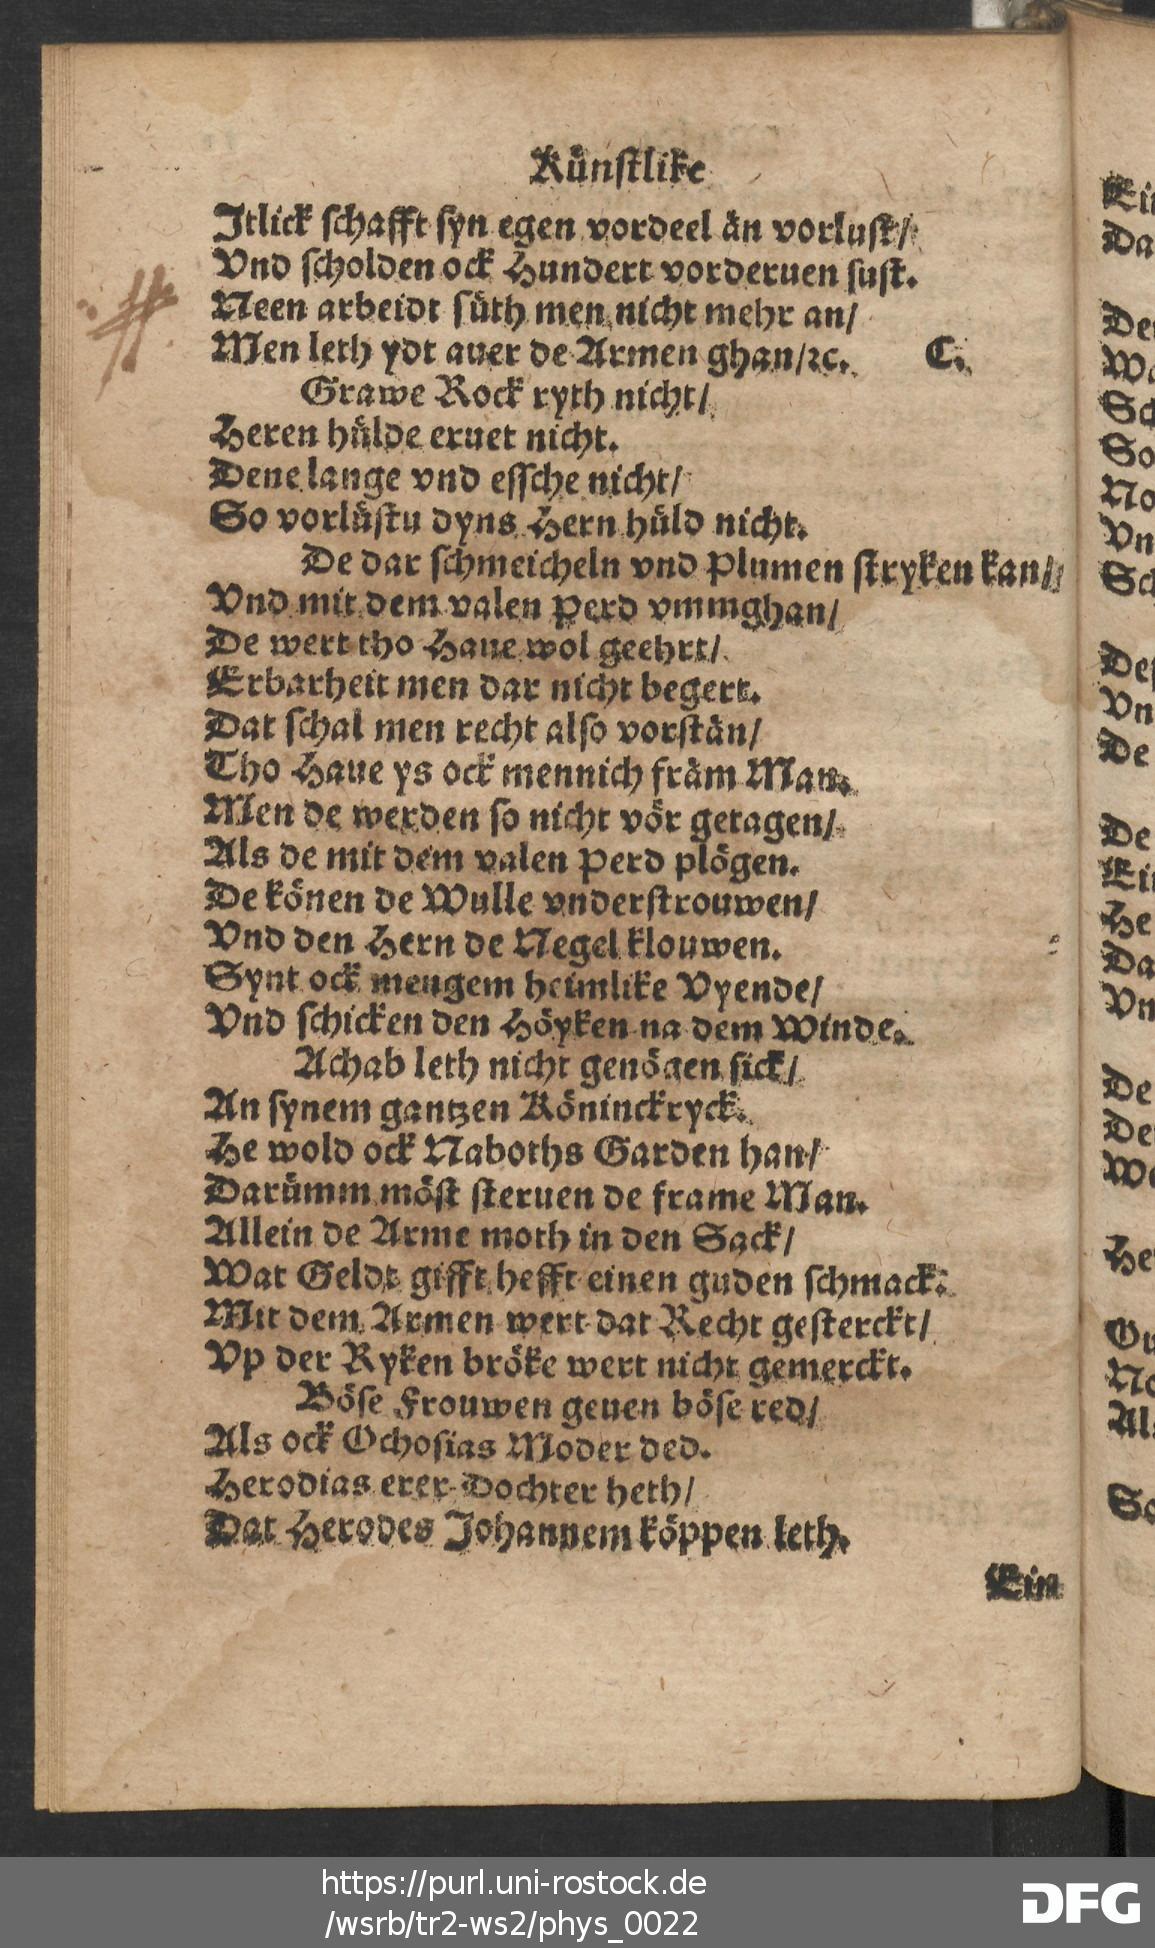 Künstlike
Jtlick schafft syn egen vordeel än vorlust/
Vnd scholden ock Hundert vorderuen sust.
Neen arbeidt süth men nicht mehr an/
Men leth ydt auer de Armen ghan/ꝛc. C.
Grawe Rock ryth nicht/
Heren hülde eruet nicht.
Dene lange vnd essche nicht/
So vorlüstu dyns Hern hüld nicht.
De dar schmeicheln vnd Plumen stryken kan/
Vnd mit dem valen Perd vmmghan/
De wert tho Haue wol geehrt/
Erbarheit men dar nicht begert.
Dat schal men recht also vorstän/
Tho Haue ys ock mennich främ Man.
Men de werden so nicht vör getagen/
Als de mit dem valen Perd plögen.
De könen de Wulle vnderstrouwen/
Vnd den Hern de Negel klouwen.
Synt ock mengem heimlike Vyende/
Vnd schicken den Höyken na dem Winde.
Achab leth nicht genögen sick/
An synem gantzen Köninckryck.
He wold ock Naboths Garden han/
Darümm möst steruen de frame Man.
Allein de Arme moth in den Sack/
Wat Geldt gifft hefft einen guden schmack.
Mit dem Armen wert dat Recht gesterckt/
Vp der Ryken bröke wert nicht gemerckt.
Böse Frouwen geuen böse red/
Als ock Ochosias Moder ded.
Herodias erer Dochter heth/
Dat Herodes Johannem köppen leth.
Ein
https://purl.uni-rostock.de
/wsrb/tr2-ws2/phys_0022
DFG